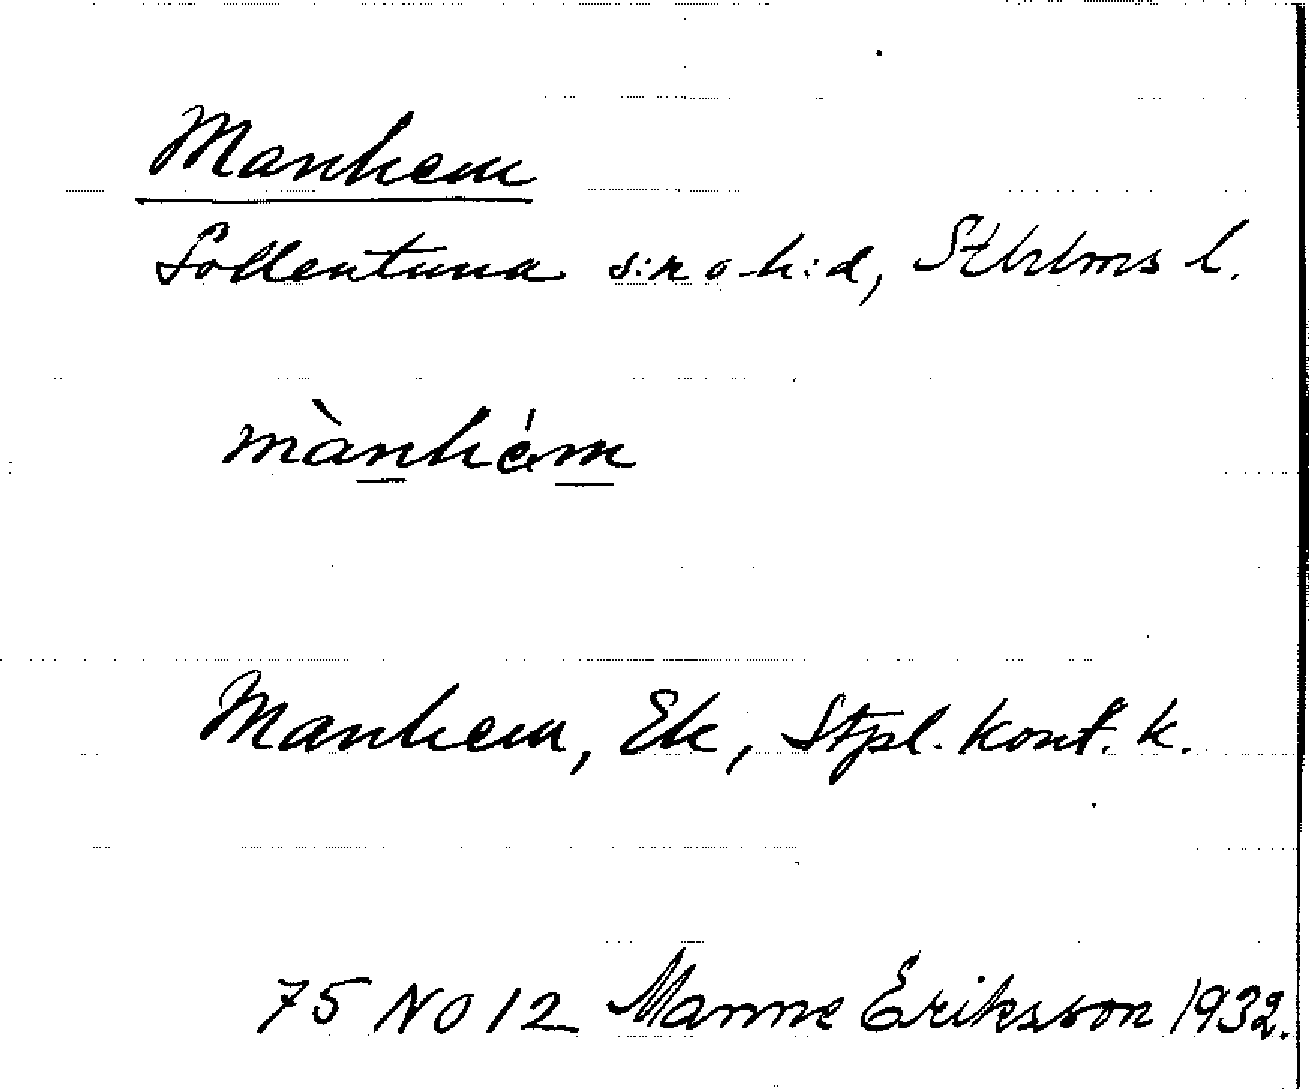 Manhem
Sollentuna s:n o h:d, Sthlms l.
mànhém
Manhem, Ek, Stpl. kont. k.
75 NO 12 Manne Eriksson 1932.